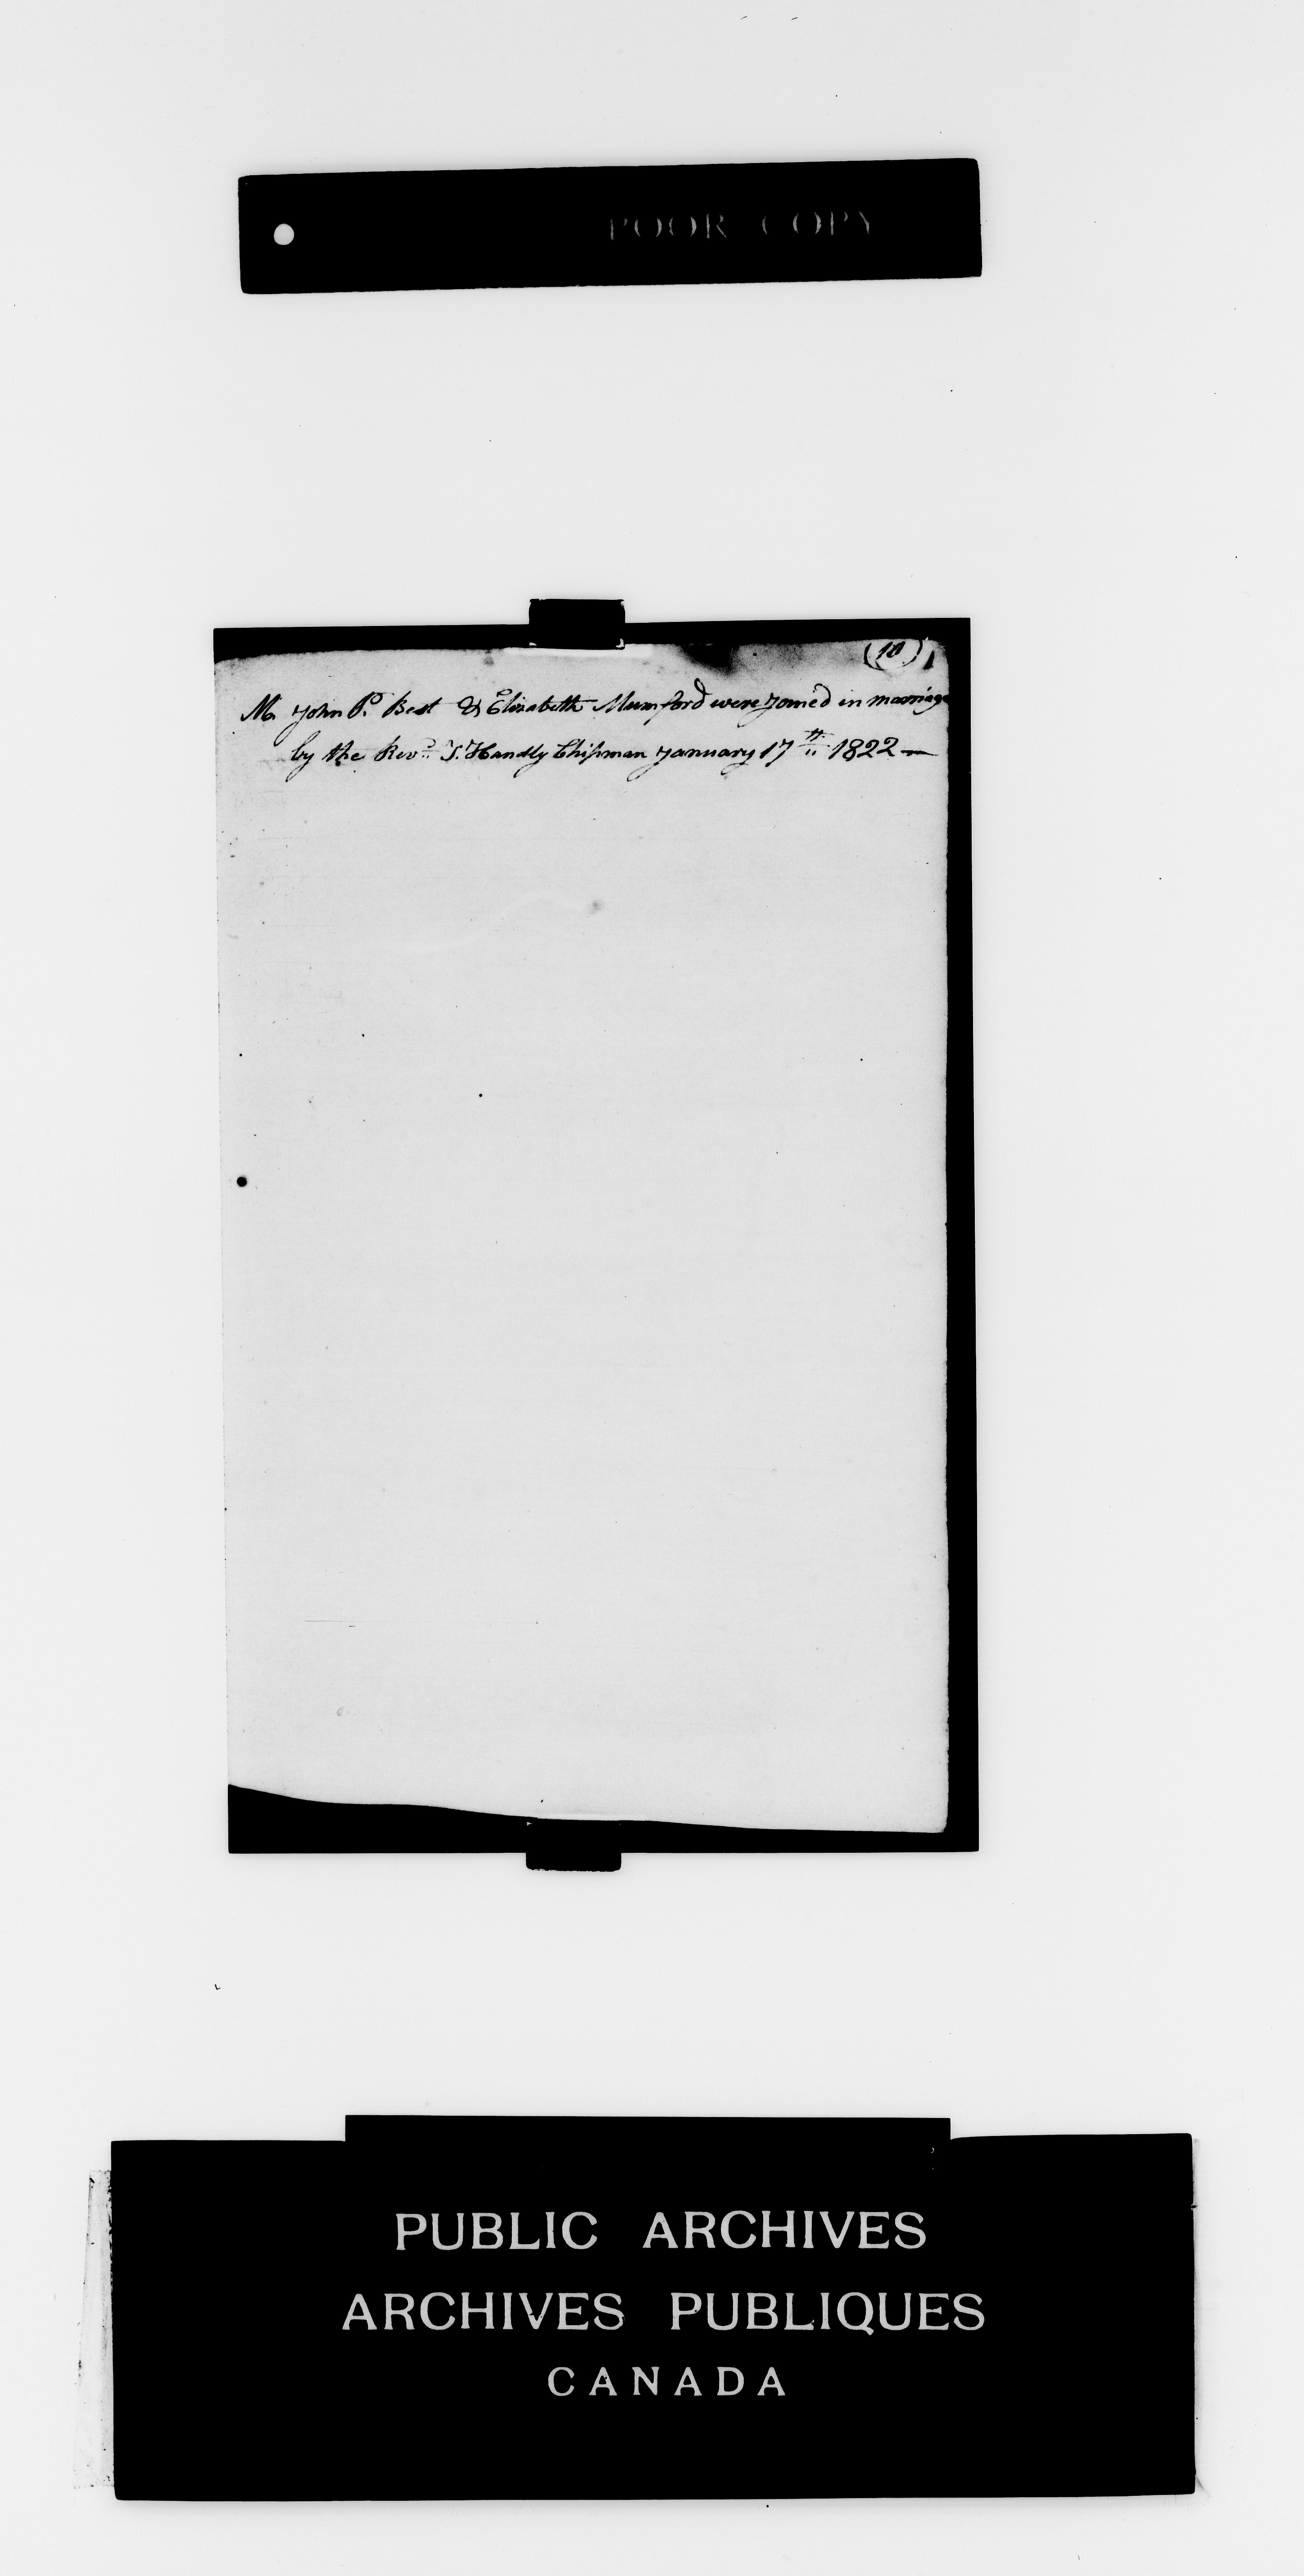 POOR COPY
(10)
Mr John P. Best & Elizabeth Mumford were joined in marriage
by the Revd T. Handly Chipman January 17th 1822 —
PUBLIC ARCHIVES
ARCHIVES PUBLIQUES
CANADA